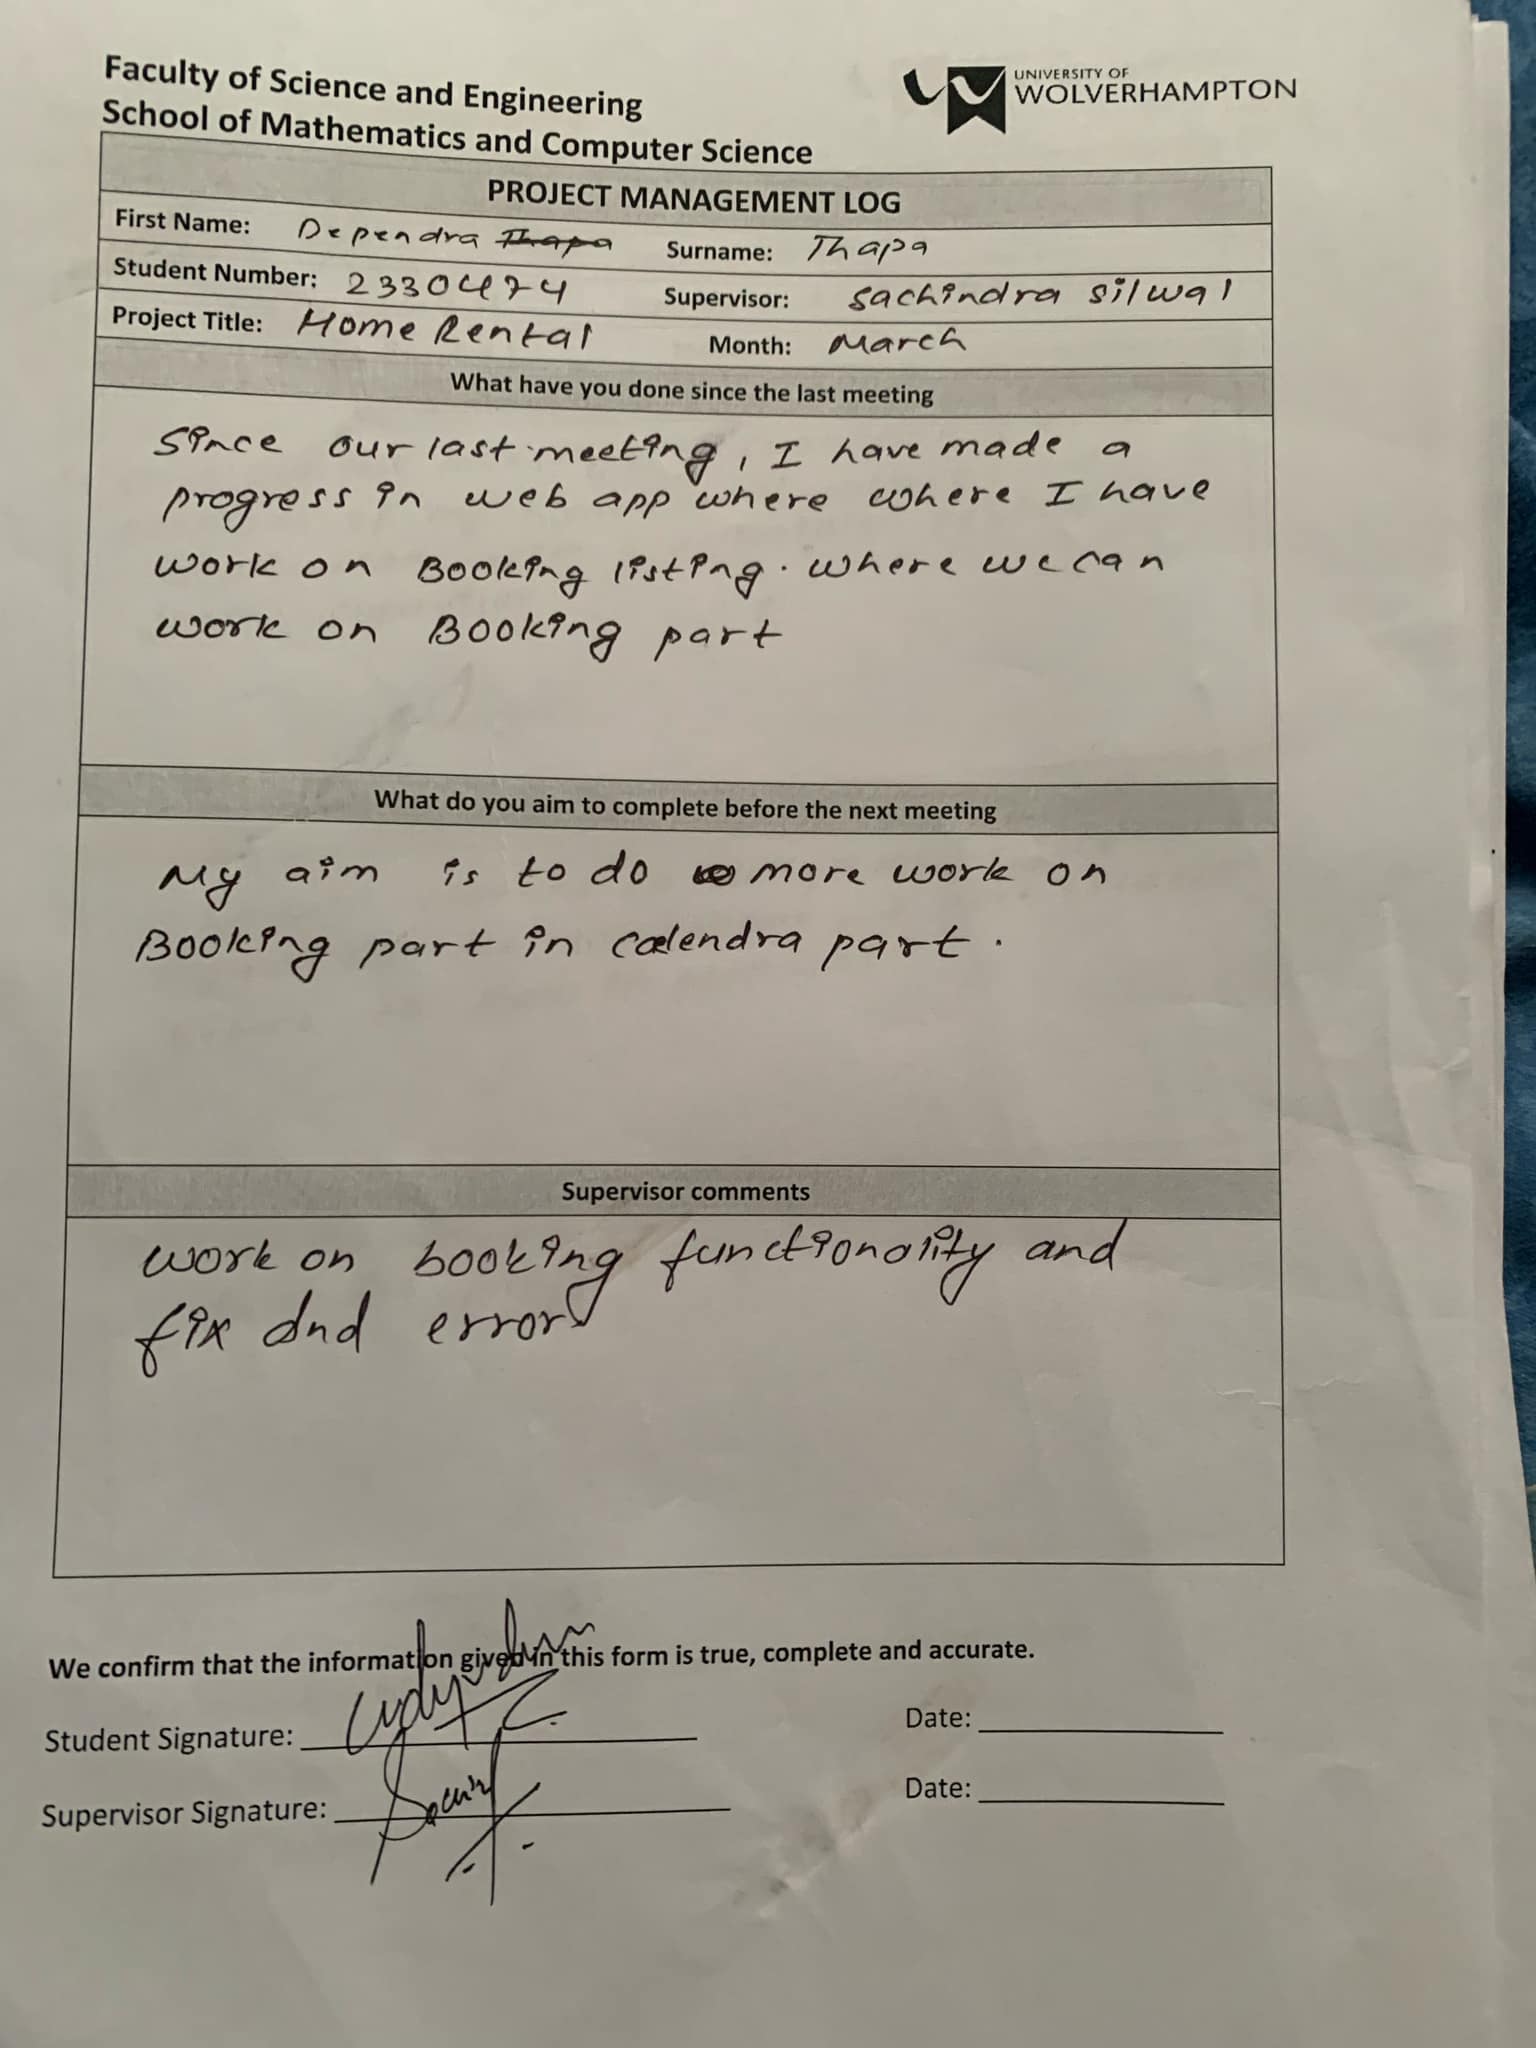 Faculty of Science and Engineering
School of Mathematics and Computer Science
UNIVERSITY OF
WOLVERHAMPTON
PROJECT MANAGEMENT LOG
First Name: Dependra Thapa Surname: Thapa
Student Number: 2330474 Supervisor: Sachindra Silwal
Project Title: Home Rental Month: March
What have you done since the last meeting
Since our last meeting, I have made a
progress in web app where where I have
work on Booking listing. where we can
work on Booking part
What do you aim to complete before the next meeting
My aim is to do more work on
Booking part in calendra part.
Supervisor comments
work on booking functionality and
fix dnd error
We confirm that the information given in this form is true, complete and accurate.
Student Signature: Date:
Supervisor Signature: Date: